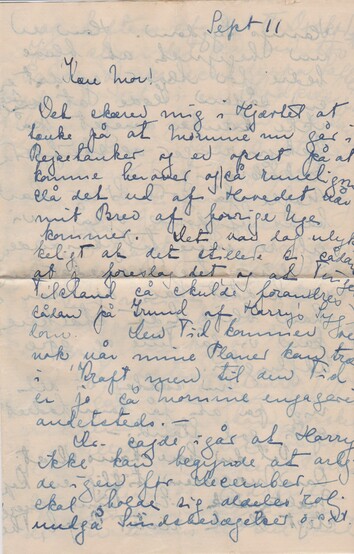 Sept 11
Kære Mor!
Det skærer mig i Hjærtet at
tænke på at Mormine nu går i
Rejsetanker og er opsat på at
komme herover og så rimeligvis
slå det ud af Hovedet når
mit Brev af forrige Uge
kommer. Det var dog ulyk
keligt at det stillede sig sådan
at j foreslog det og at Tingenes
Tilstand så skulde forandres
sådan på Grund af Harrys Syg
dom. Den Tid kommer
nok når mine Planer kan træ
i Kraft men til den Tid
er jo så mormine engageret
andetsteds. —
De sagde igår at Harry
ikke kan begynde at arbej
de igen før December —
skal holde sig aldeles roli
undgå Sindsbevægelser o.s.v.